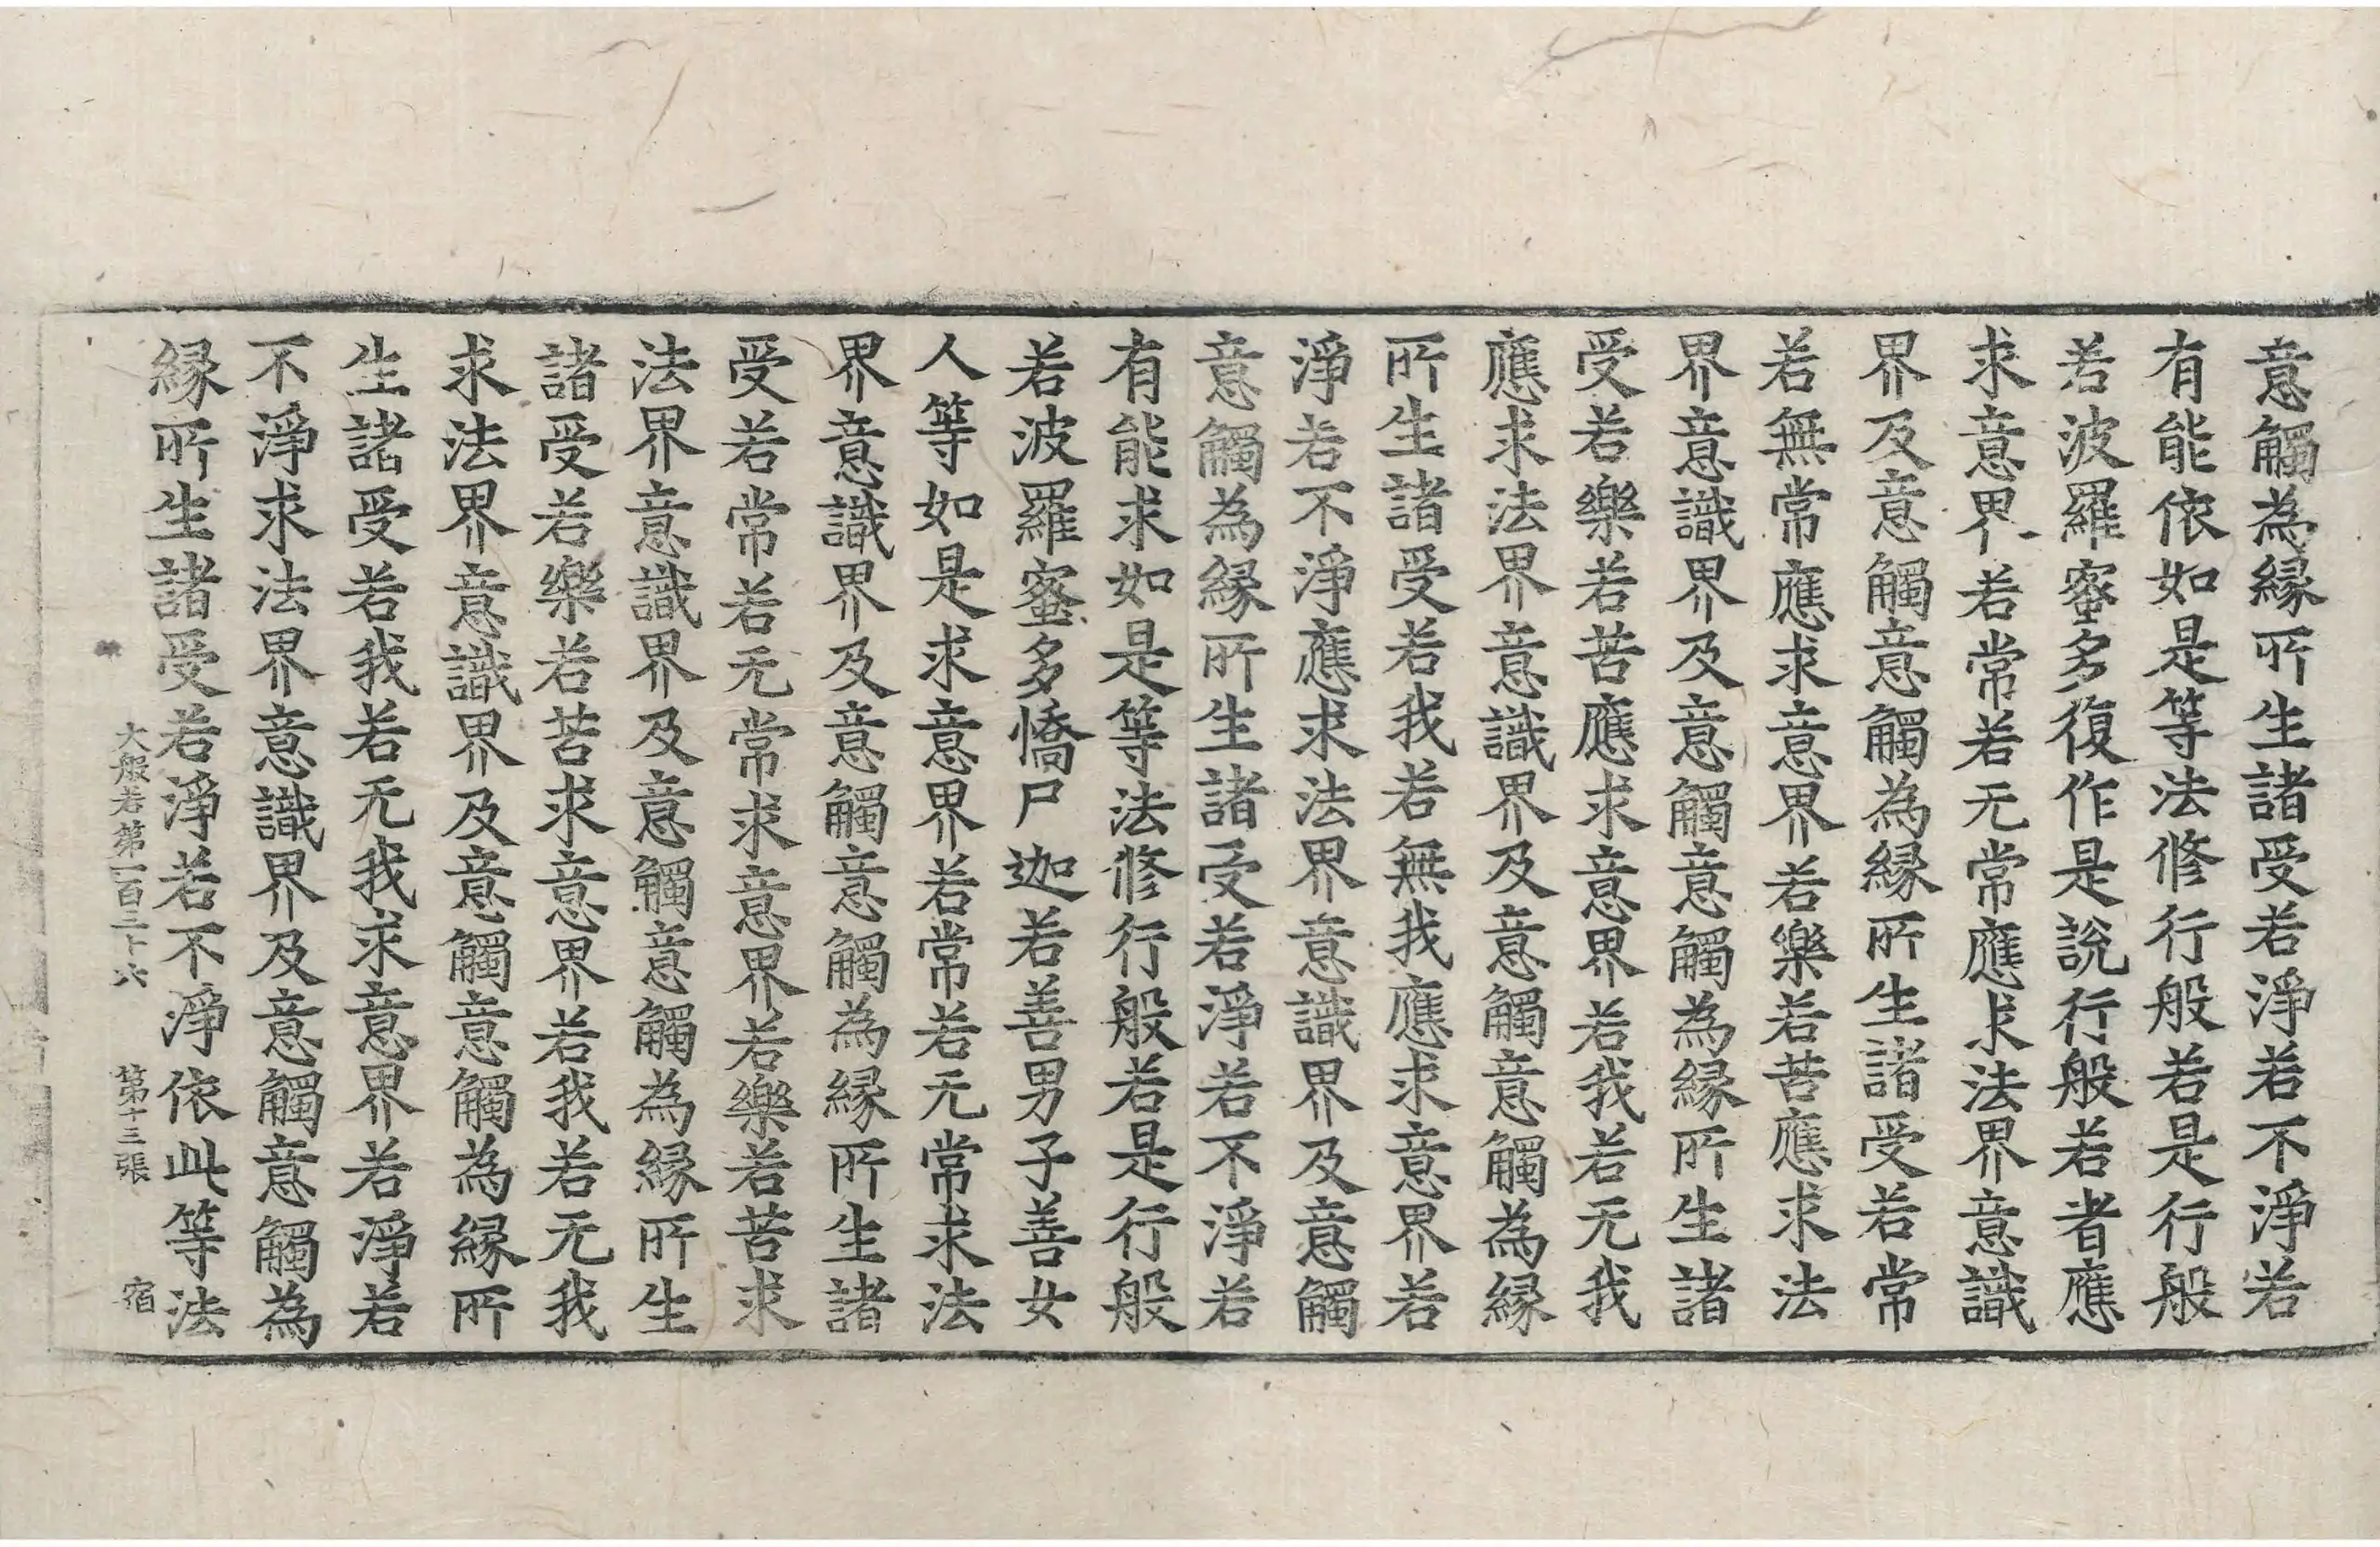 意觸為緣所生諸受若淨若不淨若
有能依如是等法修行般若是行般
若波羅蜜多復作是說行般若者應
求意界若常若无常應求法界意識
界及意觸意觸為緣所生諸受若常
若無常應求意界若樂若苦應求法
界意識界及意觸意觸為緣所生諸
受若樂若苦應求意界若我若无我
應求法界意識界及意觸意觸為緣
所生諸受若我若無我應求意界若
淨若不淨應求法界意識界及意觸
意觸為緣所生諸受若淨若不淨若
有能求如是等法修行般若是行般
若波羅蜜多憍尸迦若善男子善女
人等如是求意界若常若无常求法
界意識界及意觸意觸為緣所生諸
受若常若无常求意界若樂若苦求
法界意識界及意觸意觸為緣所生
諸受若樂若苦求意界若我若无我
求法界意識界及意觸意觸為緣所
生諸受若我若无我求意界若淨若
不淨求法界意識界及意觸意觸為
緣所生諸受若淨若不淨依此等法
大般若第一百三十六 第十三張 宿